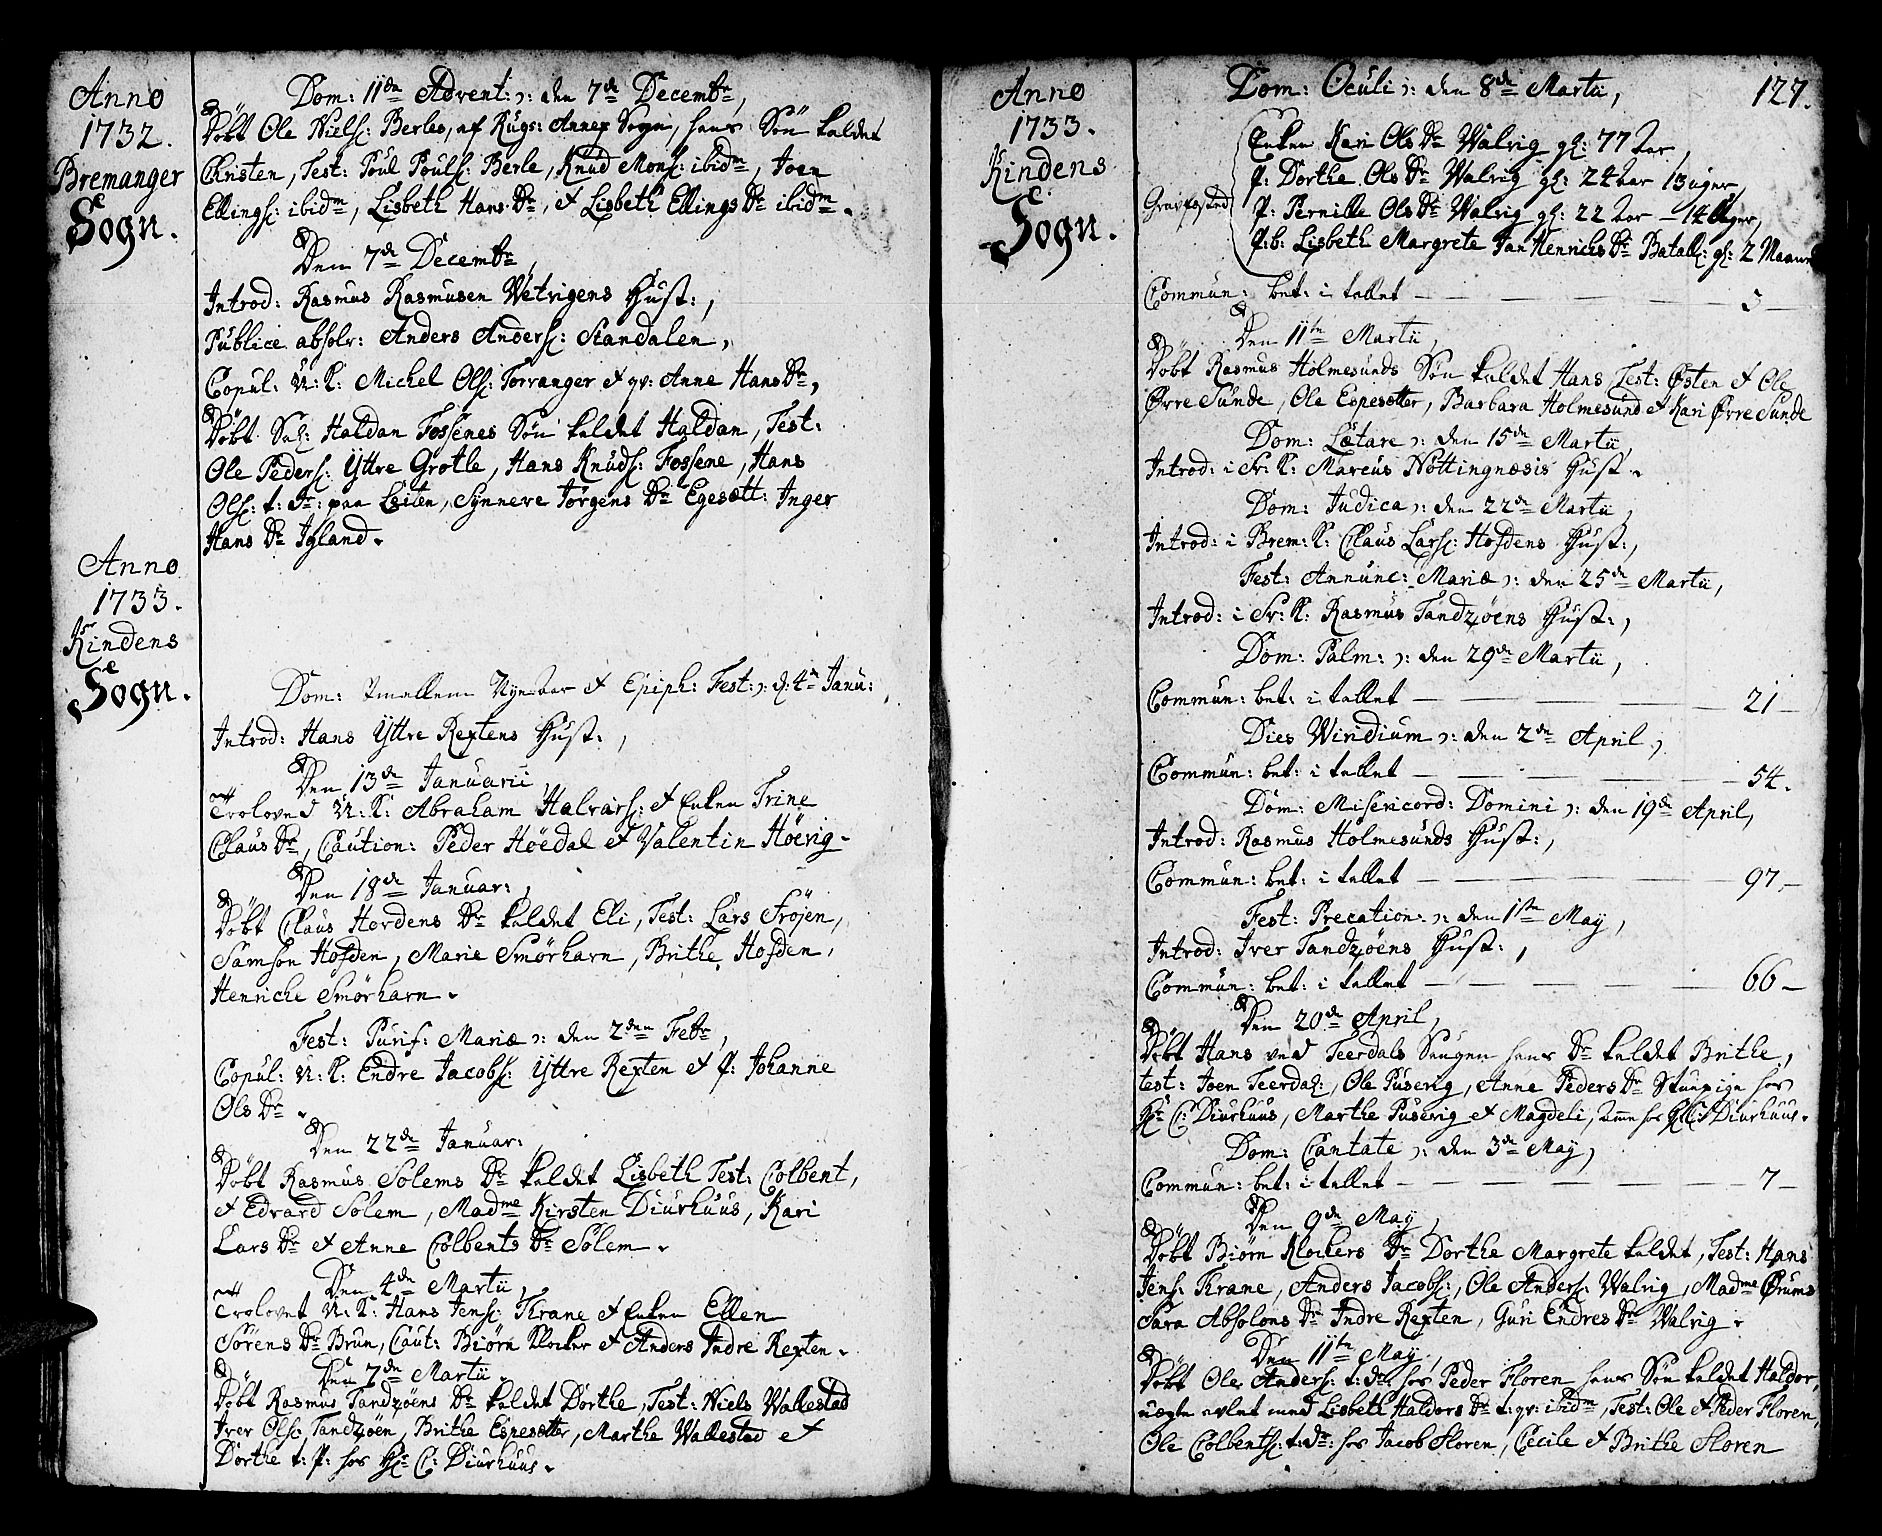 Anno
1732.
Bremanger
Sogn.
Dom: 11dn Advent: ɔ: den 7de Decembr,
Døbt Ole Niels: Berles, af Rugs: Annex Sogn, hans Søn kaldet
Christen, Test: Poul Pouls: Berle, Knud Mons: ibidm, Joen
Ellings: ibidm, Lisbeth Hans Dr, et Lisbeth Ellings Dr ibidm.
Den 7de Decembr,
Introd: Rasmus Rasmusen Wetrigens Hust:,
Publice absolv: Anders Anders: Standalen,
Copul: U: K: Michel Ols: Torranger et qv: Anne Hans Dr,
Døbt Sal: Haldan Fossenes Søn kaldet Haldan, Test:
Ole Peders: Yttre Grotle, Hans Knuds: Fossene, Hans
Ols: t: Dr: paa Leiten, Synneve Jørgens Dr Egesætt: Inger
Hans Dr Igland.
Anno
1733.
Kindens
Sogn.
Dom: Imellem Nyeaar et Epiph: Fest: ɔ: d: 4de Janu:
Introd: Hans Yttre Rextens Hust:,
Den 13de Januarii
Troloved U: K: Abraham Halvars: et Enken Trine
Claus Dr, Caution: Peder Høedal et Valentin Høevig.
Den 18de Januar:,
Døbt Claus Hovdens Dr kaldet Eli, Test: Lars Frøjen,
Samson Hofden, Marie Smørhavn, Brithe Hofden,
Henriche Smørhavn.
Fest: Purif: Mariæ ɔ: den 2den Febr,
Copul: U: K: Endre Jacobs: Yttre Rexten et P: Johanne
Ols Dr.
Den 22de Januar:
Døbt Rasmus Solems Dr kaldet Lisbeth Test: Colbent,
et Edvard Solem, Madme Kirsten Diurhuus, Kari
Lars Dr et Anne Colbents Dr Solem.
Den 4de Martii,
Trolovet U: K: Hans Jens: Thrane et Enken Ellen
Sørens Dr Brun, Caut: Biørn Klocker et Anders Indre Rexten.
Den 7de Martii.
Døbt Rasmus Tandzøens Dr kaldet Dorthe, Test: Niels Wallestad
Iver Ols: Tandzøen, Brithe Espesætter, Marthe Wallestad et
Dorthe t: P: hos Hr C: Diurhuus.
Anno
1733.
Kindens
Sogn.
127.
Dom: Oculi ɔ: den 8de Martii,
Gravfæsted
Enken Kari Ols Dr Walvig gl: 77 Aar,
P: Dorthe Ols Dr Walvig gl: 24 aar 13 uger,
P: Pernille Ols Dr Walvig gl: 22 Aar – 14 Uger,
P: b: Lisbeth Margrete Jan Henrichs Dr Batall: gl: 2 Maaned
Commun: bet: i tallet — 5 —
Den 11te Martii,
Døbt Rasmus Holmesunds Søn kaldet Hans Test: Østen et Ole
Ørre Sunde, Ole Espesætter, Barbara Holmesund et Kari Ørre Sunde
Dom: Lætare ɔ: den 15de Martii,
Introd: i Sv: K: Marcus Nottingnæsis Hust.
Dom: Judica ɔ: den 22de Martii,
Introd: i Brem: K: Claus Lars: Hofdens Hust:,
Fest: Annunc: Mariæ ɔ: den 25de Martii,
Introd: i Sv: K: Rasmus Tandzøens Hust:,
Dom: Palm: ɔ: den 29de Martii,
Commun: bet: i tallet — 21 —
Dies Viridium ɔ: den 2de April,
Commun: bet: i tallet — 54.
Dom: Misericord: Domini ɔ: den 19de April,
Introd: Rasmus Holmesunds Hust:,
Commun: bet: i tallet — 97 —
Fest: Precation: ɔ: den 1ste May,
Introd: Iver Tandzøens Hust:,
Commun: bet: i tallet — 66 —
Den 20de April,
Døbt Hans ved Teerdals Saugen hans Dr kaldet Brithe,
test: Joen Teerdal:, Ole Puservig, Anne Peders Dr Stuepige hos
Hr C: Diurhuus, Marthe Puservig et Magdeli, Amme hos Hr C: Diurhuus.
Dom: Cantate ɔ: den 3de May,
Commun: bet: i tallet — 7 —
Den 9de May,
Døbt Biørn Klockers Dr Dorthe Margrete kaldet, Test: Hans
Jens: Thrane, Anders Jacobs:, Ole Anders: Walvig, Madme Ørums
Sara Absolons Dr Indre Rexten, Guri Endres Dr Walvig.
Den 11te May,
Døbt Ole Anders: t: Dr: hos Peder Floren hans Søn kaldet Haldor,
uægte avlet med Lisbeth Haldors Dr t: qv: ibidm, Test: Ole et Peder Floren,
Ole Colbents: t: Dr: hos Jacob Floren, Cecile et Brithe Floren